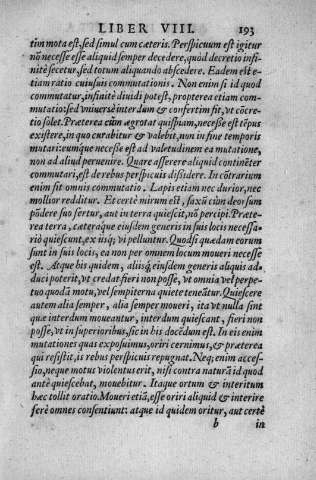 LIBER VIII. 193
tim mota est, sed simul cum cæteris. Perspicuum est igitur
nō necesse esse aliquid semper decedere, quòd decretio infi-
nitè secetur, sed totum aliquando abscedere. Eadem est e-
tiam ratio cuiusuis commutationis. Non enim si id quod
commutatur, infinitè diuidi potest, propterea etiam com-
mutatio: sed vniuersè interdum & confertim fit, vt cōcre-
tio solet. Præterea cùm ægrotat quispiam, necesse est tēpus
existere, in quo curabitur & valebit, non in fine temporis
mutari: eumque necesse est ad valetudinem ea mutatione,
non ad aliud peruenire. Quare asserere aliquid continēter
commutari, est de rebus perspicuis dissidere. In cōtrarium
enim fit omnis commutatio. Lapis etiam nec durior, nec
mollior redditur. Et certè mirum est, saxū cùm deorsum
pōdere suo fertur, aut in terra quiescit, nō percipi. Præte-
rea terra, cæteráque eiusdem generis in suis locis necessa-
riò quiescunt, ex iisq; vi pelluntur. Quodsi quædam eorum
sunt in suis locis, ea non per omnem locum moueri necesse
est. Atque his quidem, aliisq; eiusdem generis aliquis ad-
duci poterit, vt credat fieri non posse, vt omnia vel perpe-
tuo quodā motu, vel sempiterna quiete teneātur. Quiescere
autem alia semper, alia semper moueri, ita vt nulla sint
quæ interdum moueantur, interdum quiescant, fieri non
posse, vt in superioribus, sic in his docēdum est. In eis enim
mutationes quas exposuimus, oriri cernimus, & præterea
qui resistit, is rebus perspicuis repugnat. Neq; enim acces-
sio, neque motus violentus erit, nisi contra naturā id quod
antè quiescebat, mouebitur. Itaque ortum & interitum
hæc tollit oratio. Moueri etiā, esse oriri aliquid & interire
ferè omnes consentiunt: atque id quidem oritur, aut certè
b in